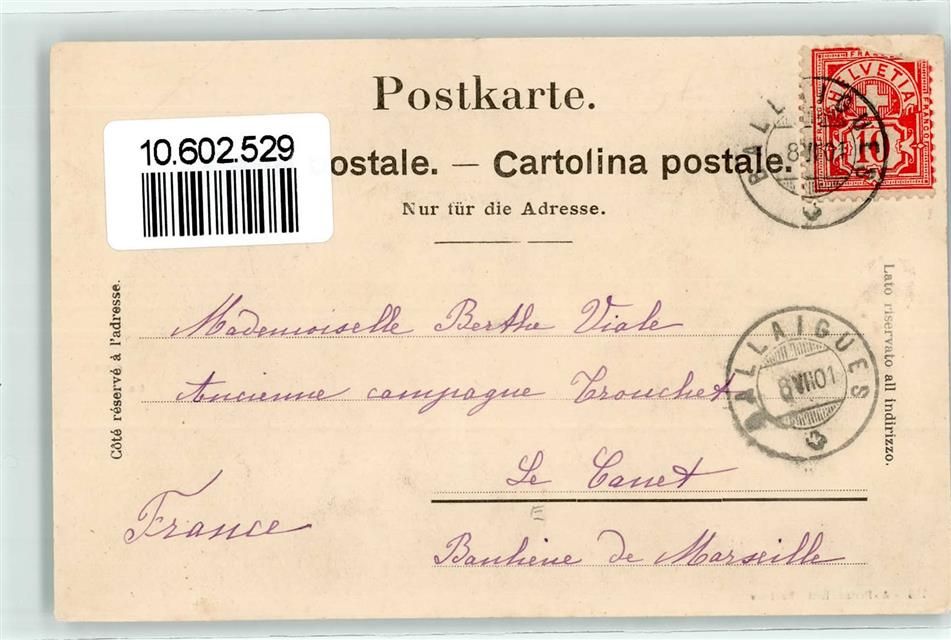 Postkarte.
10.602.529
postale. — Cartolina postale.
Nur für die Adresse.
HELVETIA
FRANCO
10
BALLAIGUES
8 VII 01
Côté réservé à l'adresse.
Lato riservato all indirizzo.
Mademoiselle Berthe Viale
Ancienne campagne Trouchet
BALLAIGUES
8 VII 01
Le Canet
France
E
Banliene de Marseille